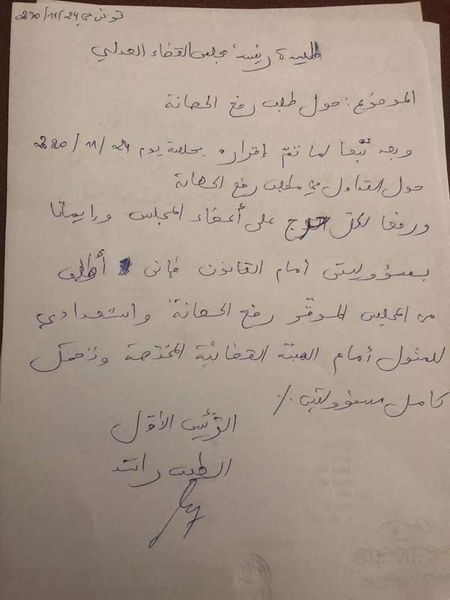 تونس في 2020/11/24
السيدة رئيسة مجلس القضاء العدلي
الموضوع: حول طلب رفع الحصانة
وبعد تبعا لما تم إقراره بجلسة يوم 24 / 11 / 2020
حول التداول في مطلب رفع الحصانة
ورفعا لكل حرج على أعضاء المجلس وإيمانا
بمسؤوليتي أمام القانون فإني أطلب
من المجلس الموقر رفع الحصانة واستعدادي
للمثول أمام الهيئة القضائية المختصة وتحمل
كامل مسؤوليتي ./.
الرئيس الأول
الطيب راشد